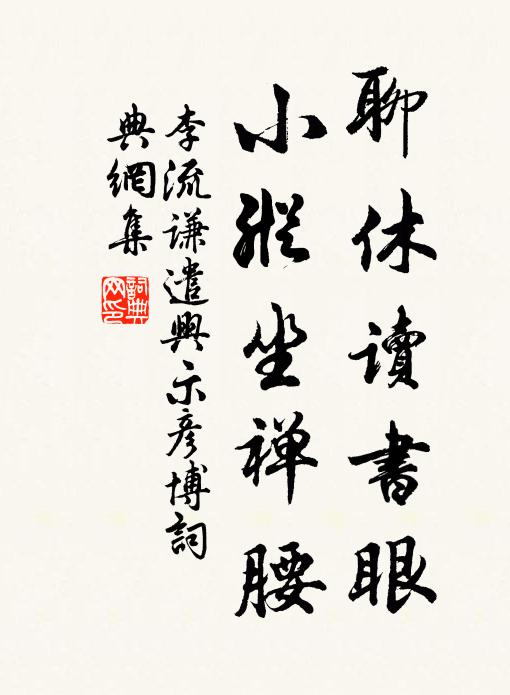 聊休讀書眼
小縱坐禅腰
李流謙遣興示彥博詞
典網集
詞典網印